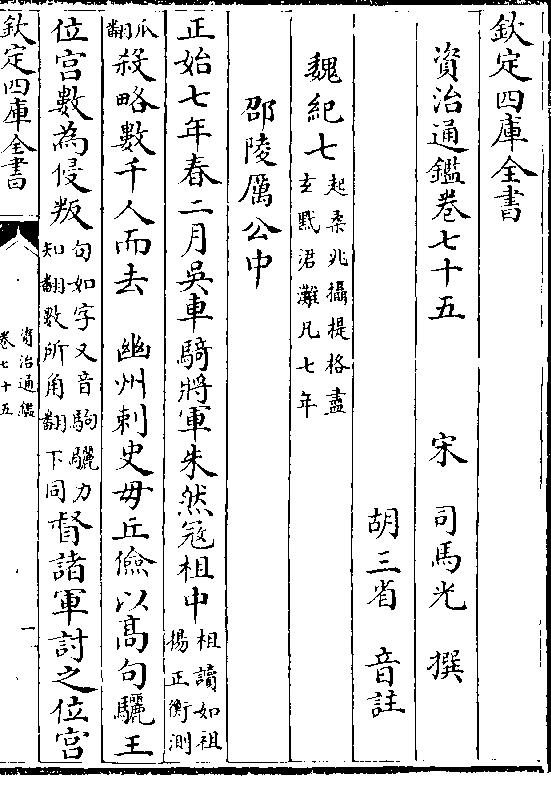 欽定四庫全書
資治通鑑卷七十五
宋　司馬光　撰
胡三省　音註
魏紀七起柔兆攝提格盡
玄黓涒灘凡七年
邵陵厲公中
正始七年春二月吳車騎將軍朱然冦柤中柤讀如祖
楊正衡測
爪
翻殺略數千人而去　幽州刺史毋丘儉以髙句驪王
位宫數為侵叛句如字又音駒驪力
知翻數所角翻下同督諸軍討之位宫
欽定四庫全書
資治通鑑
卷七十五
一